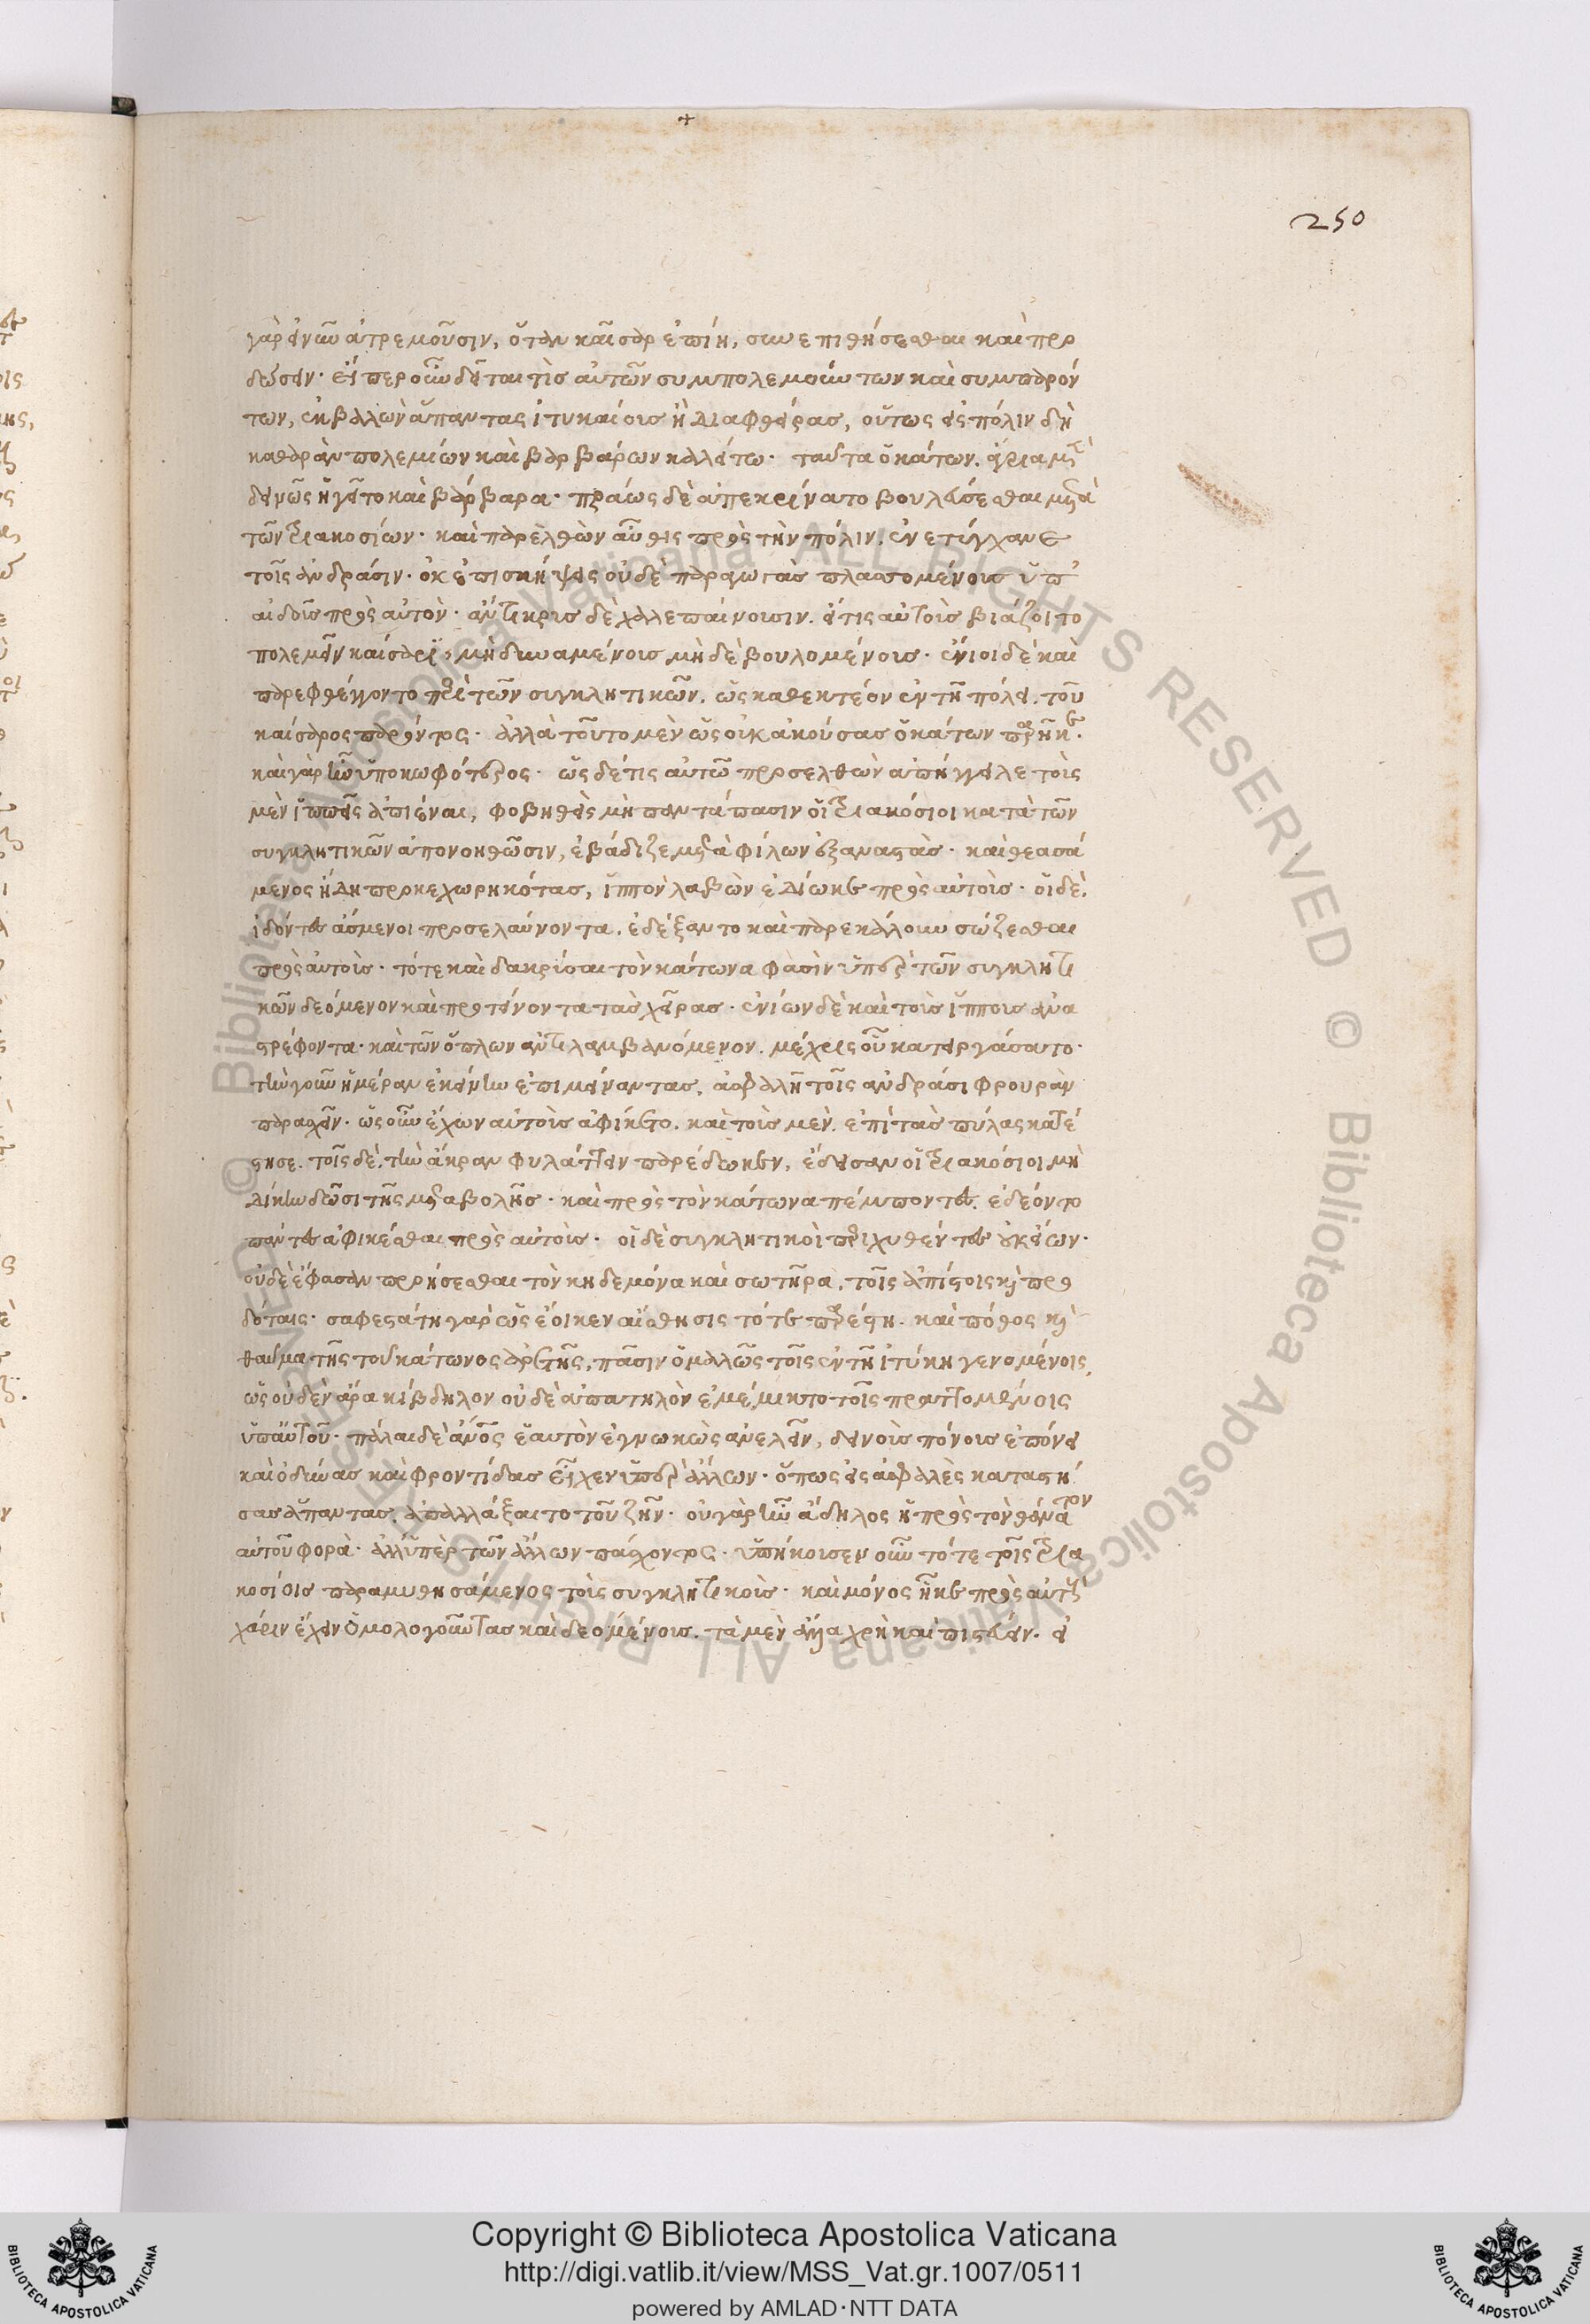 250
γὰρ ἐν ᾧ ἀτρεμοῦσιν, ὅταν καῖσαρ ἐπίη, συνεπιθήσεσθαι καὶ προ
δώσειν. εἴπερ οὖν δεῖται τὶς αὐτῶν συμπολεμούντων καὶ συμπαρόν
των, ἐκβαλὼν ἅπαντας ἰτυκαίους ἢ διαφθείρας, οὕτως εἰς πόλιν δὴ
καθαρὰν πολεμίων καὶ βαρβάρων καλείτω. ταῦτα ὁ κάτων, ἄγρια μὲν
δεινῶς ἡγεῖτο καὶ βάρβαρα. πράως δὲ ἀπεκρίνατο βουλεύσεσθαι μετὰ
τῶν τριακοσίων. καὶ παρελθὼν αὖθις πρὸς τὴν πόλιν, ἐνετύγχανε
τοῖς ἀνδράσιν. οὐκ ἐπισκήψεις οὐδὲ παραγωγὰς πλασσομένοις ὑπ'
αἰδοῦς πρὸς αὐτὸν. ἄντικρυς δὲ χαλεπαίνουσιν, εἴ τις αὐτοὺς βιάζοιτο
πολεμεῖν καίσαρι, μὴ δυναμένους μὴ δὲ βουλομένους. ἔνιοι δὲ καὶ
παρεφθέγγοντο περὶ τῶν συγκλητικῶν, ὡς καθεκτέον ἐν τῇ πόλει, τοῦ
καίσαρος παρόντος. ἀλλὰ τοῦτο μὲν ὡς οὐκ ἀκούσας ὁ κάτων παρῆκε.
καὶ γὰρ ἦν ὑποκωφότερος. ὡς δέ τις αὐτῷ προσελθὼν ἀπήγγειλε τοὺς
μὲν ἱππεῖς ἀπιέναι, φοβηθεὶς μὴ παντάπασιν οἱ τριακόσιοι κατὰ τῶν
συγκλητικῶν ἀπονοηθῶσιν, ἐβάδιζε μετὰ φίλων ἐξαναστὰς. καὶ θεασά
μενος ἤδη προκεχωρηκότας, ἵππον λαβὼν ἐδίωκε πρὸς αὐτοὺς. οἱ δὲ,
ἰδόντες ἄσμενοι προσελαύνοντα, ἐδέξαντο καὶ παρεκάλουν σώζεσθαι
πρὸς αὐτοὺς. τότε καὶ δακρύσαι τὸν κάτωνα φασὶν ὑπὲρ τῶν συγκλητι
κῶν δεόμενον καὶ προτείνοντα τὰς χεῖρας. ἐνίων δὲ καὶ τοὺς ἵππους ἀνα
στρέφοντα. καὶ τῶν ὅπλων ἀντιλαμβανόμενον, μέχρις οὗ κατειργάσατο.
τὴν γοῦν ἡμέραν ἐκείνην ἐπιμείναντας, ἀσφαλῆ τοῖς ἀνδράσι φρουρὰν
παρασχεῖν. ὡς οὖν ἔχων αὐτοὺς ἀφίκετο, καὶ τοὺς μὲν, ἐπὶ τὰς πύλας κατέ
στησε, τοῖς δὲ, τὴν ἄκραν φυλάττειν παρέδωκεν, ἔδεισαν οἱ τριακόσιοι μὴ
δίκην δῶσι τῆς μεταβολῆς. καὶ πρὸς τὸν κάτωνα πέμποντες, ἐδέοντο
πάντες ἀφικέσθαι πρὸς αὐτοὺς. οἱ δὲ συγκλητικοὶ περιχυθέντες οὐκ εἴων.
οὐδὲ ἔφασαν προήσεσθαι τὸν κηδεμόνα καὶ σωτῆρα, τοῖς ἀπίστοις καὶ προ
δόταις. σαφεστάτη γὰρ ὡς ἔοικεν αἴσθησις τότε παρέστη. καὶ πόθος καὶ
θαῦμα τῆς τοῦ κάτωνος ἀρετῆς, πᾶσιν ὁμαλῶς τοῖς ἐν τῇ ἰτύκῃ γενομένοις,
ὡς οὐδὲν ἄρα κίβδηλον οὐδὲ ἀπατηλὸν ἐμέμικτο τοῖς πραττομένοις
ὑπ' αὐτοῦ. πάλαι δὲ ἄνος ἑαυτὸν ἐγνωκὼς ἀνελεῖν, δεινοὺς πόνους ἐπόνει
καὶ ὀδύνας καὶ φροντίδας εἶχεν ὑπὲρ ἄλλων. ὅπως εἰς ἀσφαλὲς καταστή
σας ἅπαντας, ἀπαλλάξαιτο τοῦ ζῆν. οὐ γὰρ ἦν ἄδηλος ἡ πρὸς τὸν θάνατον
αὐτοῦ φορὰ. ἀλλ' ὑπὲρ τῶν ἄλλων πάσχοντος. ὑπήκουσεν οὖν τότε τοῖς τρια
κοσίοις παραμυθησάμενος τοὺς συγκλητικοὺς. καὶ μόνος ἧκε πρὸς αὐτοὺς
χάριν ἔχειν ὁμολογοῦντας καὶ δεομένους, τὰ μὲν ἄλλα χρῆ καὶ πιστεύειν. εἰ
Copyright © Biblioteca Apostolica Vaticana
http://digi.vatlib.it/view/MSS_Vat.gr.1007/0511
powered by AMLAD·NTT DATA